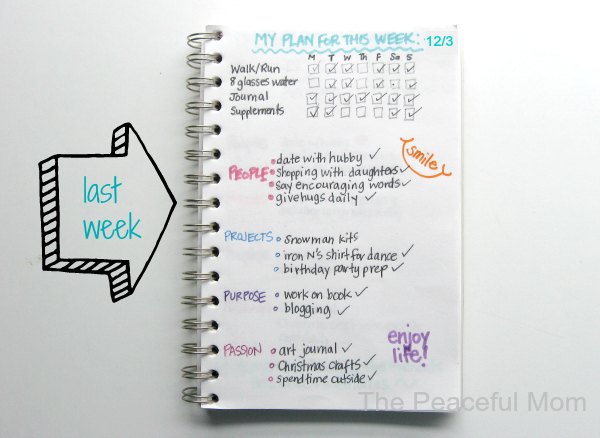 MY PLAN FOR THIS WEEK: 12/3
M T W Th F Sa S
Walk/Run
8 glasses water
Journal
Supplements
smile
last
week
PEOPLE
date with hubby
shopping with daughters
say encouraging words
give hugs daily
PROJECTS
snowman kits
iron N's shirt for dance
birthday party prep
PURPOSE
work on book
blogging
enjoy
life!
PASSION
art journal
Christmas crafts
spend time outside
The Peaceful Mom